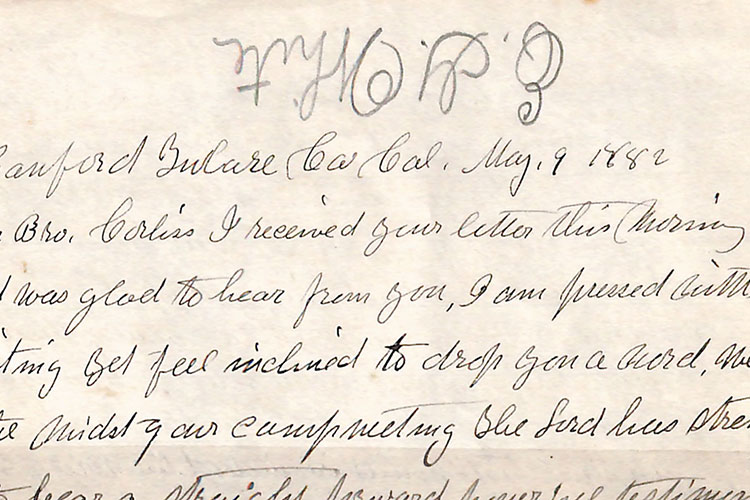 E. G. White
anford Tulare Co Cal. May, 9 1882
Bro. Corliss I received your letter this morning
d was glad to hear from you, I am pressed with
iting yet feel inclined to drop you a word, we
the midst of our campmeeting The Lord has stren
to bear a straight forward